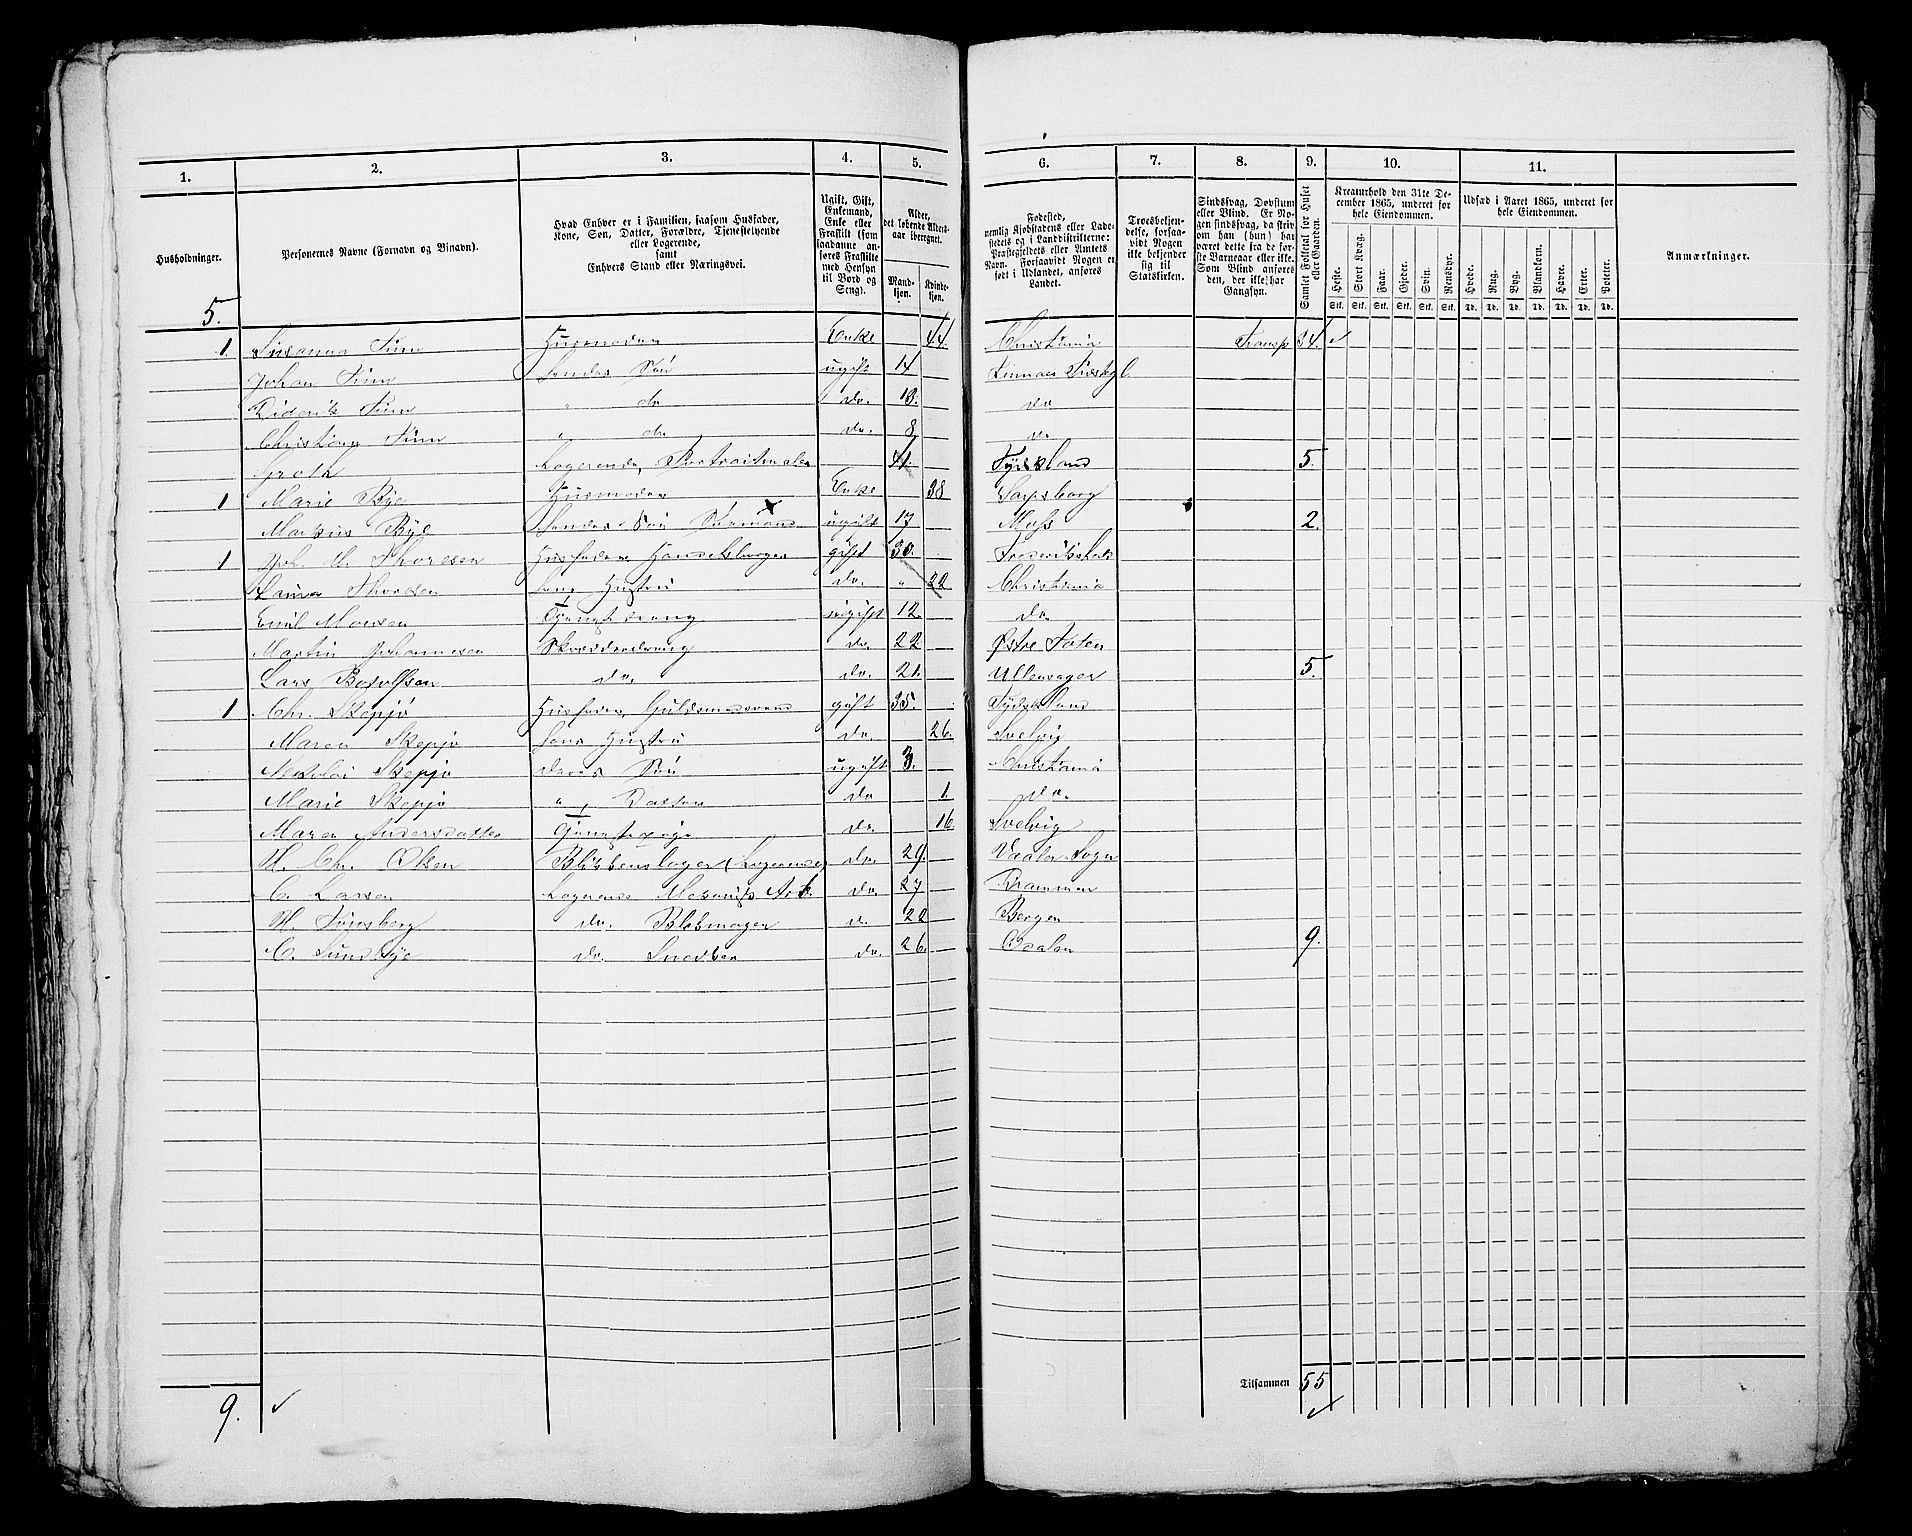 1. 2. 3. 4. 5. 6. 7. 8. 9. 10. 11.
Husholdninger.
Personernes Navne (Fornavn og Binavn).
Hvad Enhver er i Familien, saasom Husfader, Kone, Søn, Datter, Forældre, Tjenestetyende eller Logerende, samt Enhvers Stand eller Næringsvei.
Ugift, Gift, Enkemand, Enke eller Fraskilt (som saadanne anføres Fraskilte med Hensyn til Bord og Seng).
Alder, det løbende Alders-aar iberegnet.
Mand-kjøn. Kvinde-kjøn.
Fødested, nemlig Kjøbstadens eller Ladestedets og i Landdistrikterne: Præstegjeldets eller Amtets Navn. Forsaavidt Nogen er født i Udlandet, anføres Landet.
Troesbekjendelse, forsaavidt Nogen ikke bekjender sig til Statskirken.
Sindssvag, Døvstum eller Blind. Er Nogen sindssvag, da skrives om han (hun) har været dette fra de første Barneaar eller ikke. Som Blind anføres den, der ikke har Gangsyn.
Samlet Folketal for Huset eller Gaarden.
Kreaturhold den 31te December 1865, underet for hele Eiendommen.
Heste. Stort Kvæg. Faar. Gjeder. Svin. Rensdyr.
Stk. Stk. Stk. Stk. Stk. Stk.
Udsæd i Aaret 1865, underet for hele Eiendommen.
Hvede. Rug. Byg. Blandkorn. Havre. Erter. Poteter.
Td. Td. Td. Td. Td. Td. Td.
Anmærkninger.
5.
1 Susanna Enke 44 Christiania Transp 34.
Johan Søn ugift 14
Diderik do do. 13. do
Christian do do. 8 do
Groth Logerende, Portraitmaler 41. Tydskland 5.
1 Marie Bye Husmoder Enke 38 Sarpsborg
Markus Bye Søn Sømand ugift 17 Moss 2.
1 Joh. M. Thoresen Husfader Handelsborger gift 30. Frederikshald
Laura Thoresen Hans Hustru do. " 22 Christiania
Emil Monsen ugift 12 do.
Martin Johannesen Skræddersvend do. 22 Østre Toten
Lars do. do. 21. Ullensager 5.
1 Chr. Skepjø Husfader, Guldsmedsvend gift 35. Tydskland
Maren Skepjø Hans Hustru do. 26. Svelvig
Nikolai Skepjø deres Søn ugift 3. Christiania
Marie Skepjø " Datter do 1. do.
Maren Andersdatter do. 16 Svelvig
H. Chr. Olsen Blikkenslager (Logerende) do. 29. Vaaler Sogn
C. Larsen Logerende Mekanisk Arb. do. 27 Drammen
H. Tønsberg do. do. 22 Bergen
C. Sundbye do. Snedker do. 26. 9.
Tilsammen 55
9.